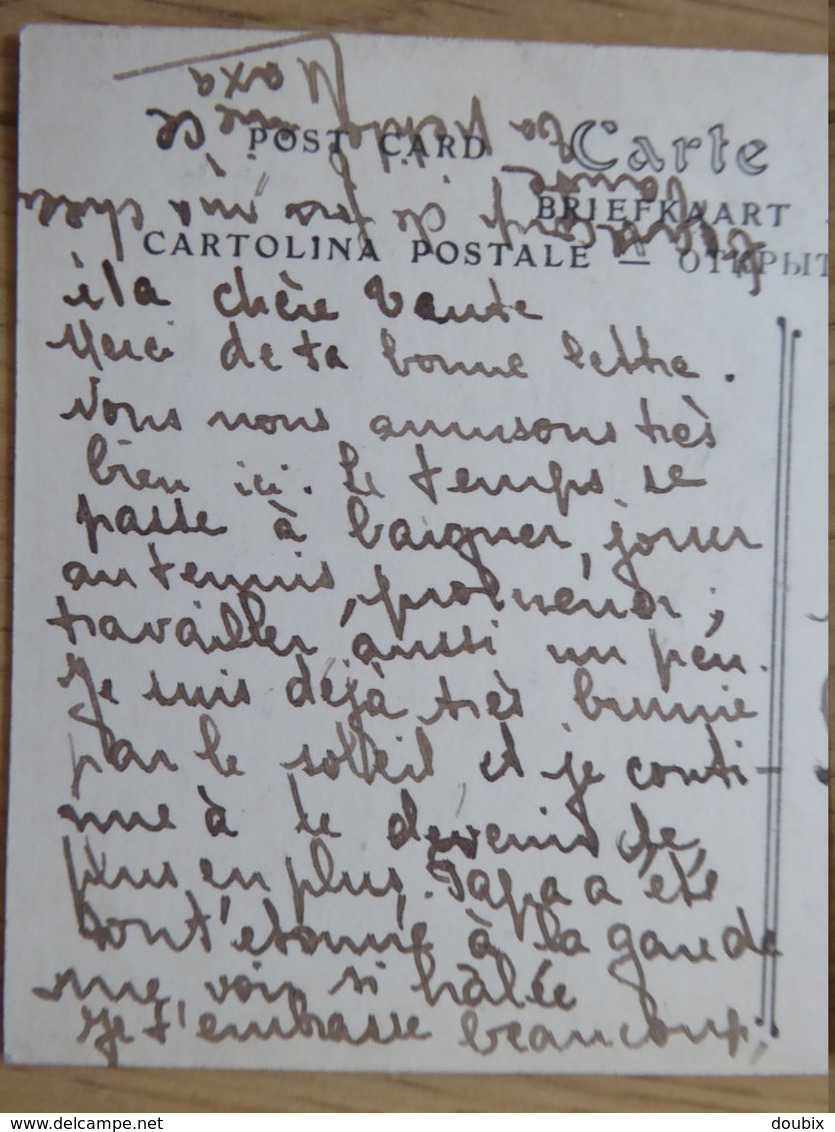 POST CARD
Carte
BRIEFKAART
CARTOLINA POSTALE — ОТКРЫТ
Ma chère Tante
Merci de ta bonne lettre.
Nous nous amusons très
bien ici. Le temps se
passe à baigner, jouer
au tennis, promener,
travailler aussi un peu.
Je suis déjà très brunie
par le soleil et je conti-
nue à le devenir de
plus en plus. Papa a été
tout étonné à la gare de
me voir si hâlée
Je t'embrasse beaucoup,
de ma chère
ta
www.delcampe.net
doubix